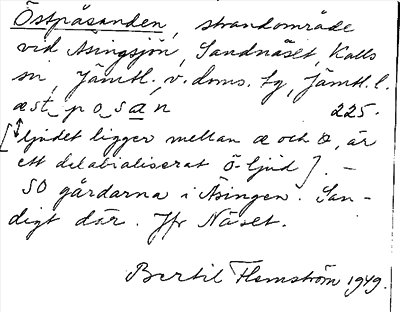 Östpåsanden, strandområde
vid Äsingsjön, Sandnäset, Kalls
sn, Jämtl. v. doms. tg, Jämtl. l.
æst_p o_s a n 225.
[ljudet ligger mellan æ och ö, är
ett delabialiserat ö-ljud]. –
SO gårdarna i Äsingen. San-
digt där. Jfr Näset.
Bertil Flemström 1949.